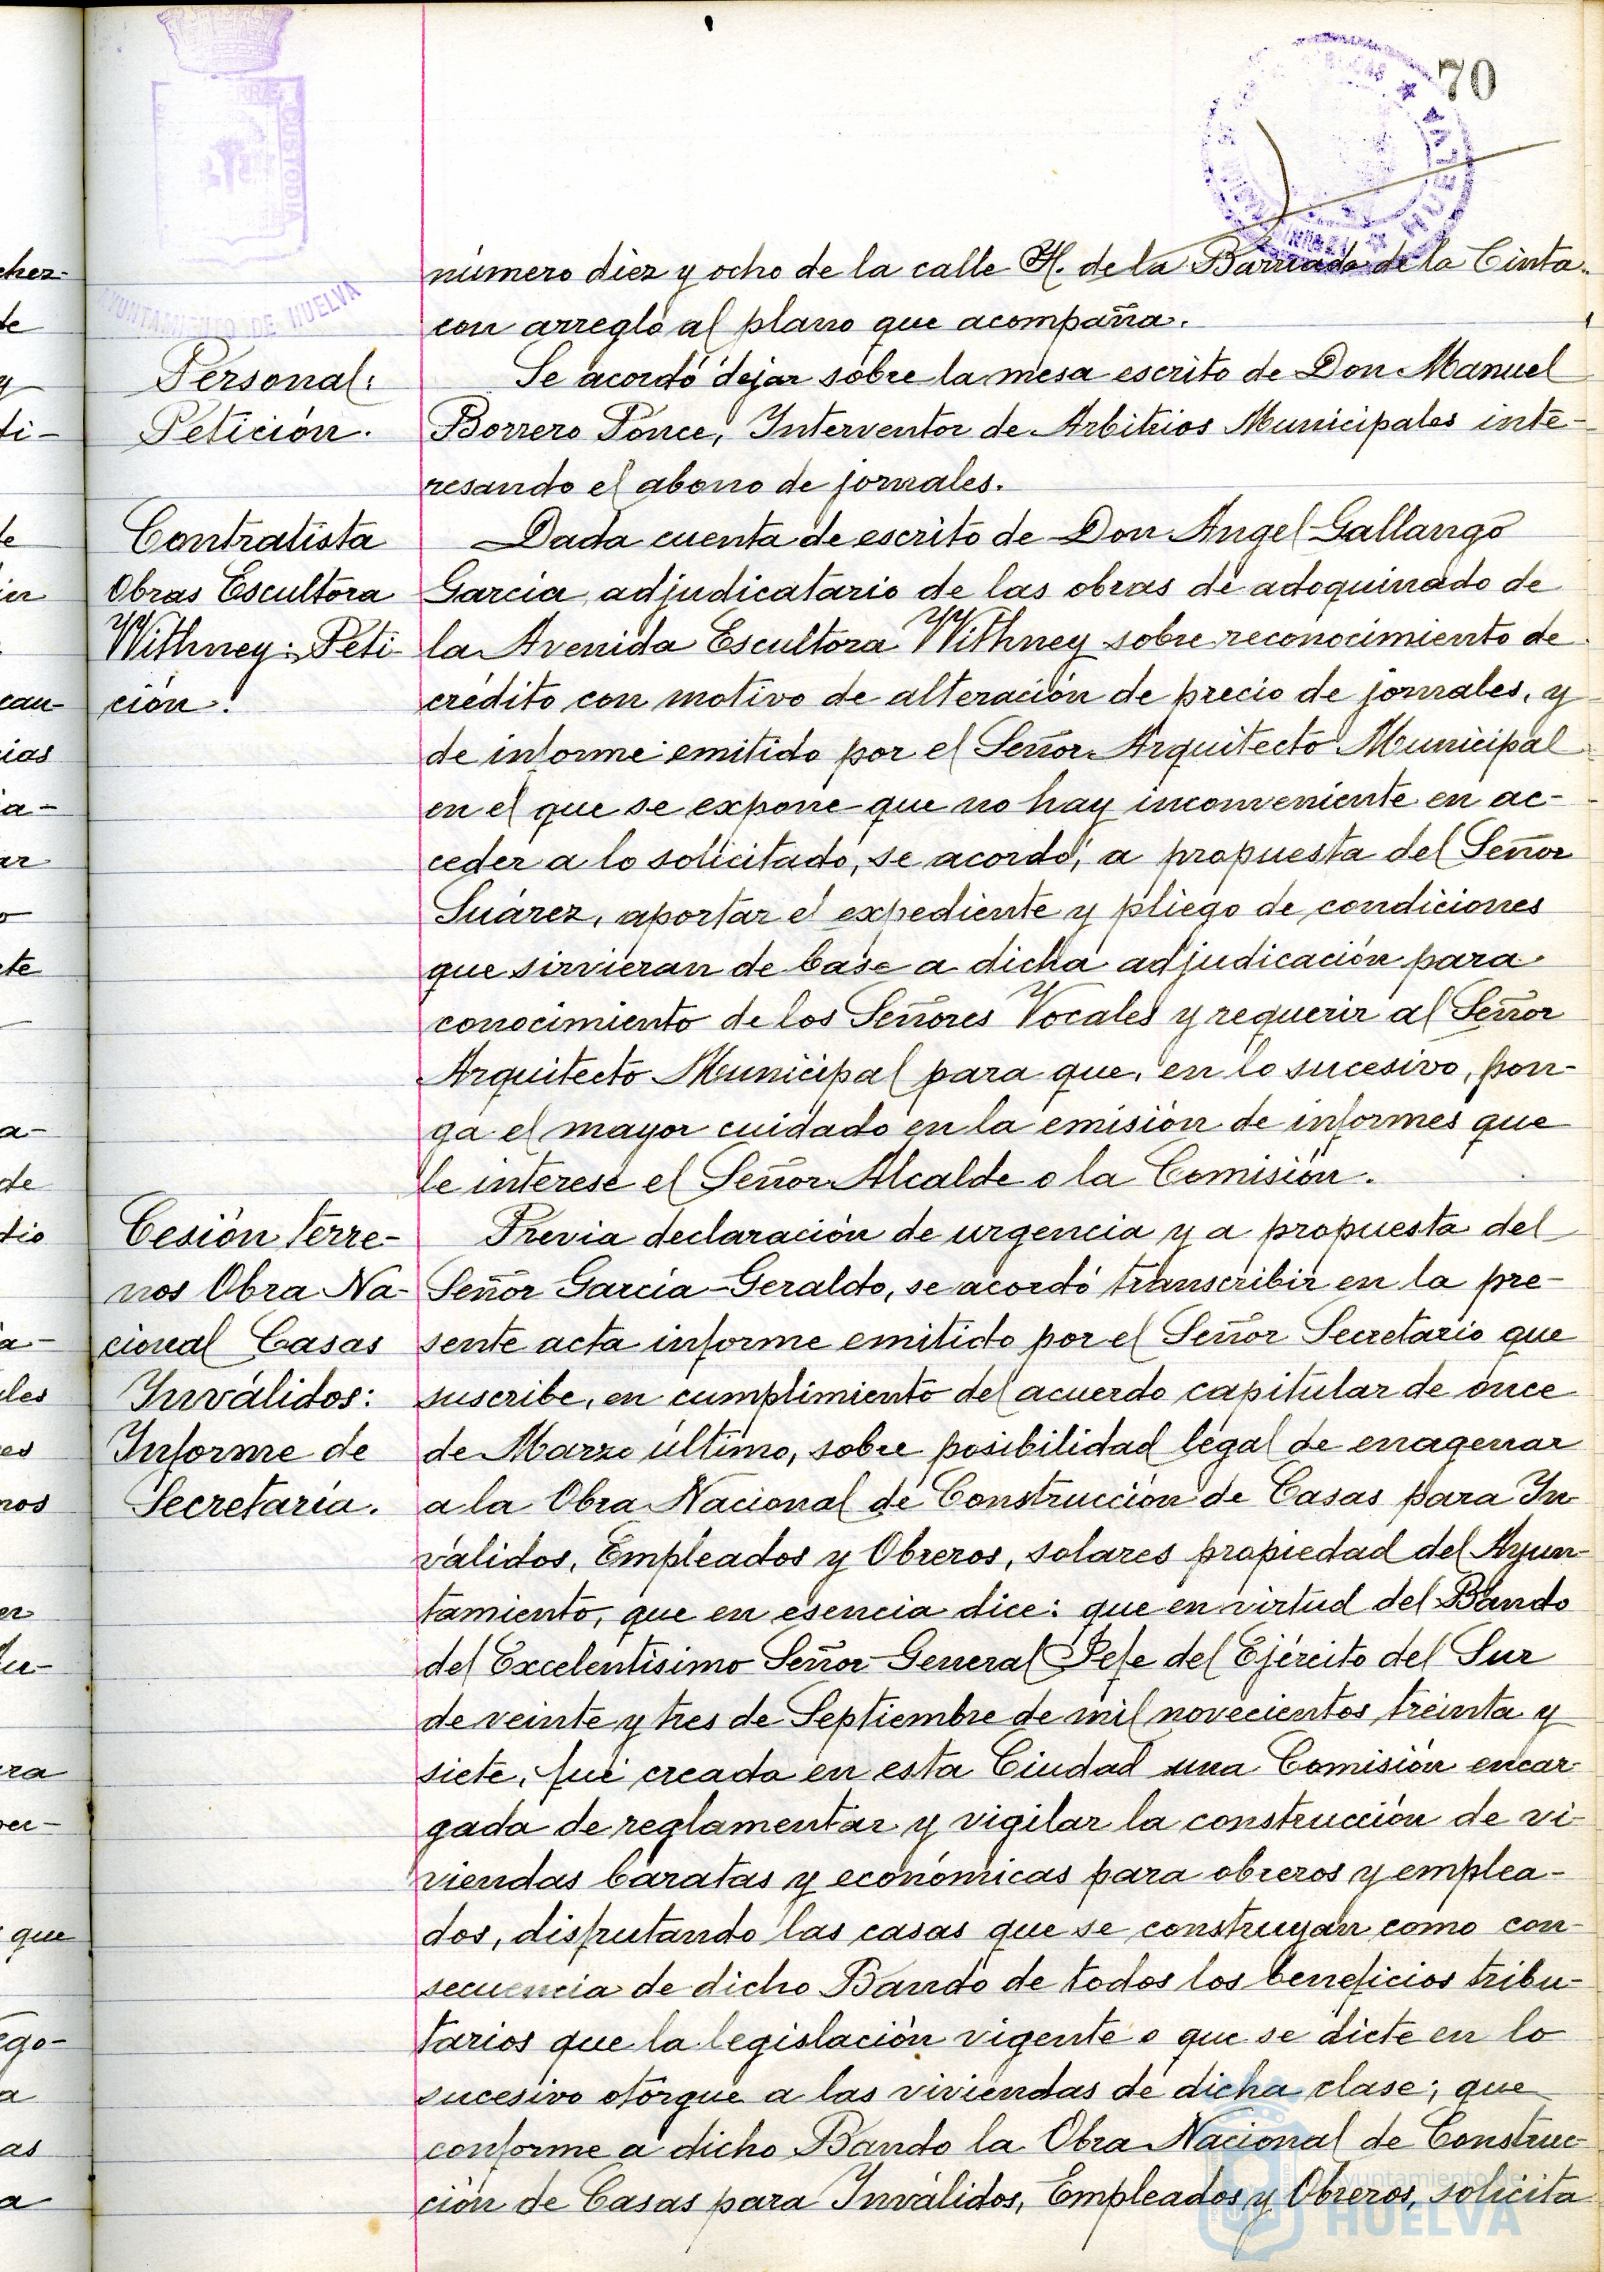 70
AYUNTAMIENTO DE HUELVA
número diez y ocho de la calle H. de la Barriada de la Cinta.
con arreglo al plano que acompaña.
Personal:
Petición.
Se acordó dejar sobre la mesa escrito de Don Manuel
Borrero Ponce, Interventor de Arbitrios Municipales inte-
resando el abono de jornales.
Contratista
Obras Escultora
Withney: Peti
ción.
Dada cuenta de escrito de Don Angel Gallango
Garcia adjudicatario de las obras de adoquinado de
la Avenida Escultora Withney sobre reconocimiento de
crédito con motivo de alteración de precio de jornales, y
de informe emitido por el Señor Arquitecto Municipal
en el que se expone que no hay inconveniente en ac-
ceder a lo solicitado, se acordó, a propuesta del Señor
Suárez, aportar el expediente y pliego de condiciones
que sirvieran de base a dicha adjudicación para
conocimiento de los Señores Vocales y requerir al Señor
Arquitecto Municipal para que, en lo sucesivo, pon-
ga el mayor cuidado en la emisión de informes que
le interese el Señor Alcalde o la Comisión.
Cesión terre-
nos Obra Na-
cional Casas
Inválidos:
Informe de
Secretaría.
Previa declaración de urgencia y a propuesta del
Señor García-Geraldo, se acordó transcribir en la pre-
sente acta informe emitido por el Señor Secretario que
suscribe, en cumplimiento del acuerdo capitular de once
de Marzo último, sobre posibilidad legal de enagenar
a la Obra Nacional de Construcción de Casas para In
válidos, Empleados y Obreros, solares propiedad del Ayun-
tamiento, que en esencia dice: que en virtud del Bando
del Excelentísimo Señor General Jefe del Ejército del Sur
de veinte y tres de Septiembre de mil novecientos treinta y
siete, fué creada en esta Ciudad una Comisión encar-
gada de reglamentar y vigilar la construcción de vi-
viendas baratas y económicas para obreros y emplea-
dos, disfrutando las casas que se construyan como con-
secuencia de dicho Bando de todos los beneficios tribu-
tarios que la legislación vigente o que se dicte en lo
sucesivo otorgue a las viviendas de dicha clase; que
conforme a dicho Bando la Obra Nacional de Construc-
ción de Casas para Inválidos, Empleados y Obreros, solicita
Ayuntamiento de
HUELVA